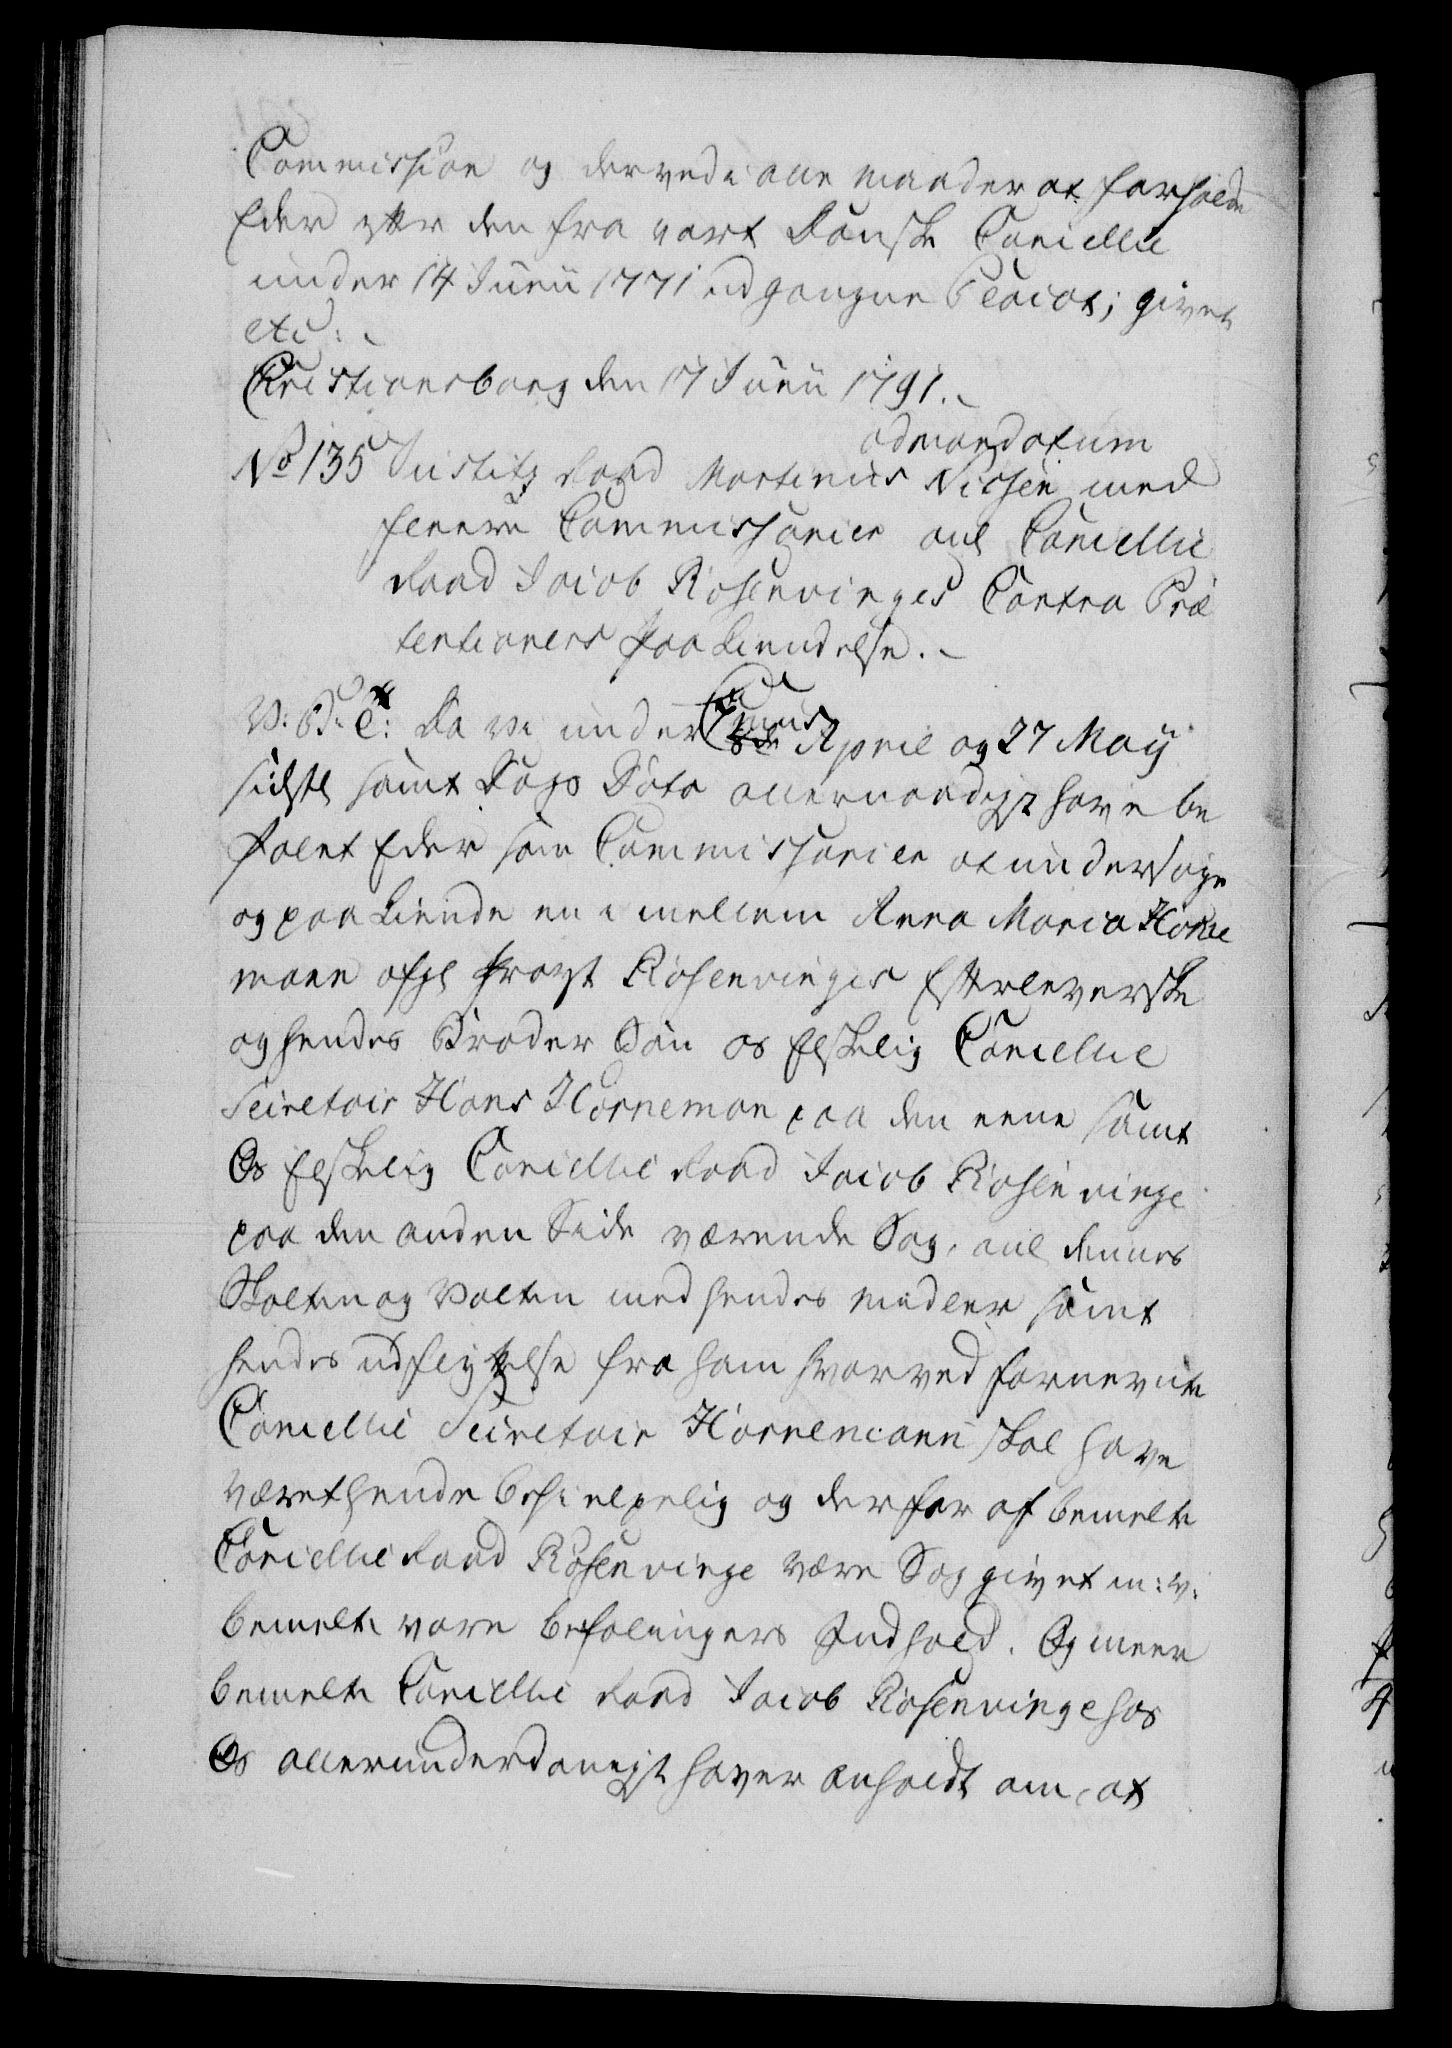 Commission og derved i alle maader at forholde
Eder efter den fra vort Danske Cancellie
under 14 Junii 1771 udgangne Placat; givet
etc:
Christiansborg den 17 Junii 1791.
No 135 Justitz Raad Martinus Nissen med
admandatum
fleere Commissarier ang Cancellie
Raad Jacob Rosenvinges Contra Præ
tentioners Paa kiendelse.
V: G: C: Da Vi under April og 27 Maij
sidstl samt Dags Dato allernaadigst have be
falet Eder som Commissarier at undersøge
og paa kiende en imellem Anna Maria Horne
mann afgl Krogt Rosenvinges Efterleverske
og hendes Broder Søn os Elskelig Cancellie
Secretair Hans Horneman paa den eene samt
Os Elskelig Cancellie Raad Jacob Rosenvinge
paa den anden Side værende Sag, anl dennes
Skalten og Valten med hendes midler samt
hendes udflyttelse fra ham hvorved fornevnte
Cancellie Secretair Hornemann skal have
været hende behielpelig og derfor af bemelte
Cancellie Raad Rosenvinge være Sag givet m: v:
bemelte vore befalingers Indhold. Og meer
bemelte Cancellie Raad Jacob Rosenvinge hos
Os allerunderdanigst haver anholdt om, at